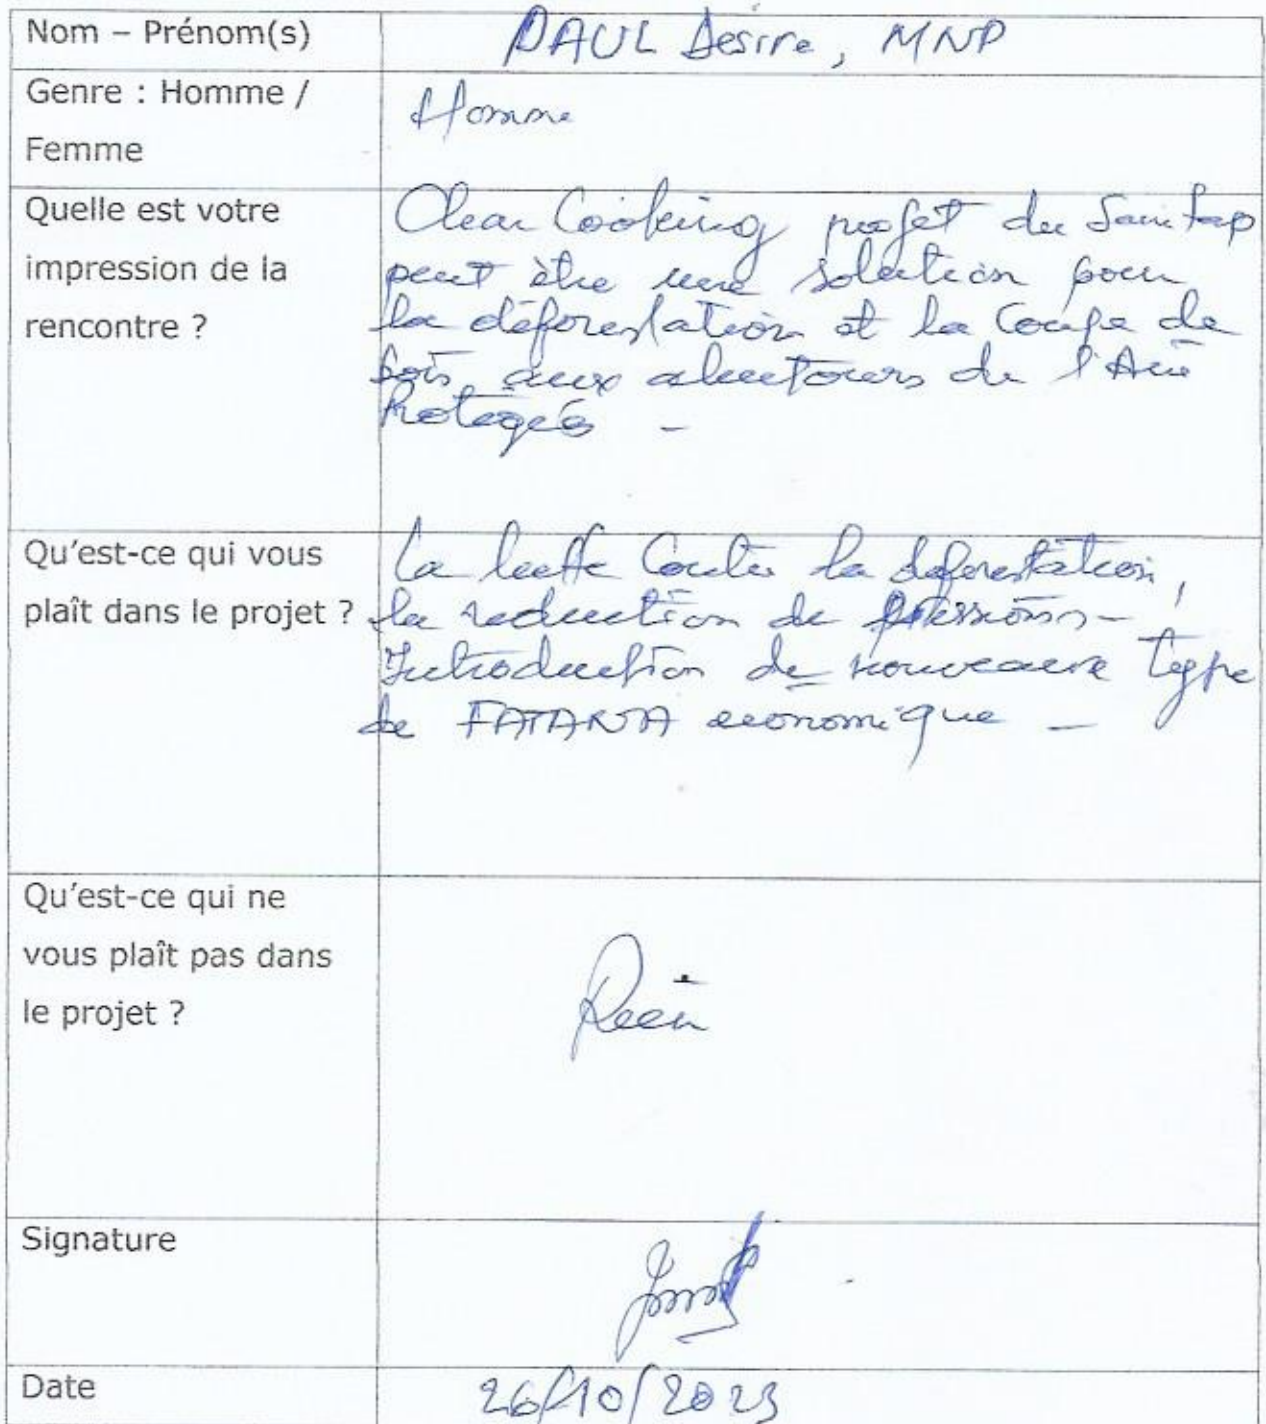 Nom – Prénom(s)
PAUL Desire, MNP
Genre : Homme /
Femme
Homme
Quelle est votre
impression de la
rencontre ?
Clean Cooking projet du
peut être une solution pour
la déforestation et la Coupe de
bois aux alentours de l'Aire
Protégés -
Qu'est-ce qui vous
plaît dans le projet ?
La lutte Contre la deforestation,
la reduction de pressions -
Introduction de nouveaux type
de FATANA economique -
Qu'est-ce qui ne
vous plaît pas dans
le projet ?
Rien
Signature
Date
26/10/2023